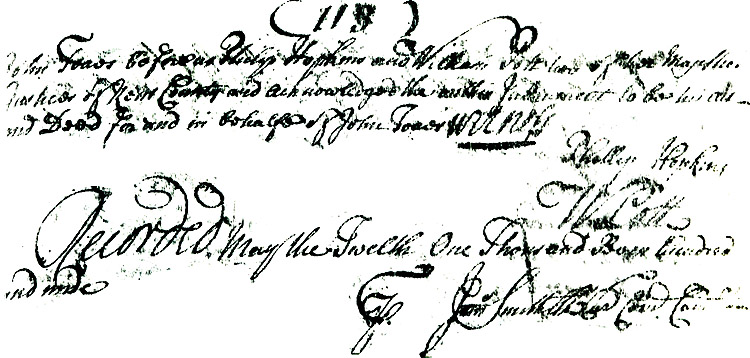 (113)
John Toaes before us Philip Hopkins and William Pott two of her Majesties
Justices of Kent County and acknowledged the within Instrument to be his Act
and Deed for and in behalfe of John Toaes
Phillip Hopkins
W Pott
Recorded May the Twelth One Thousand Seven hundred
and nine